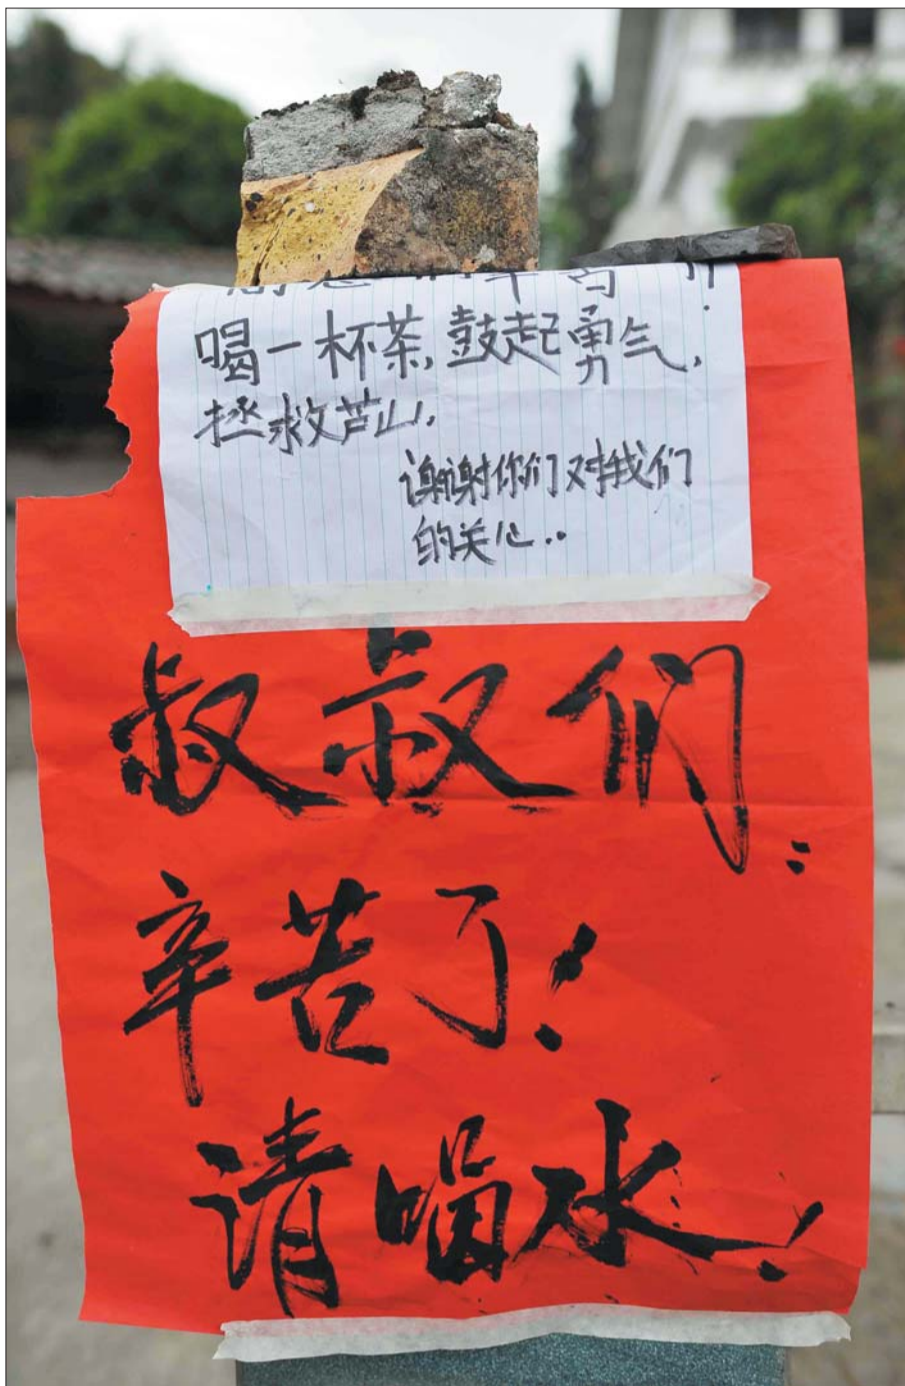 喝一杯茶,鼓起勇气,
拯救芦山,
谢谢你们对我们
的关心..
叔叔们:
辛苦了!
请喝水!